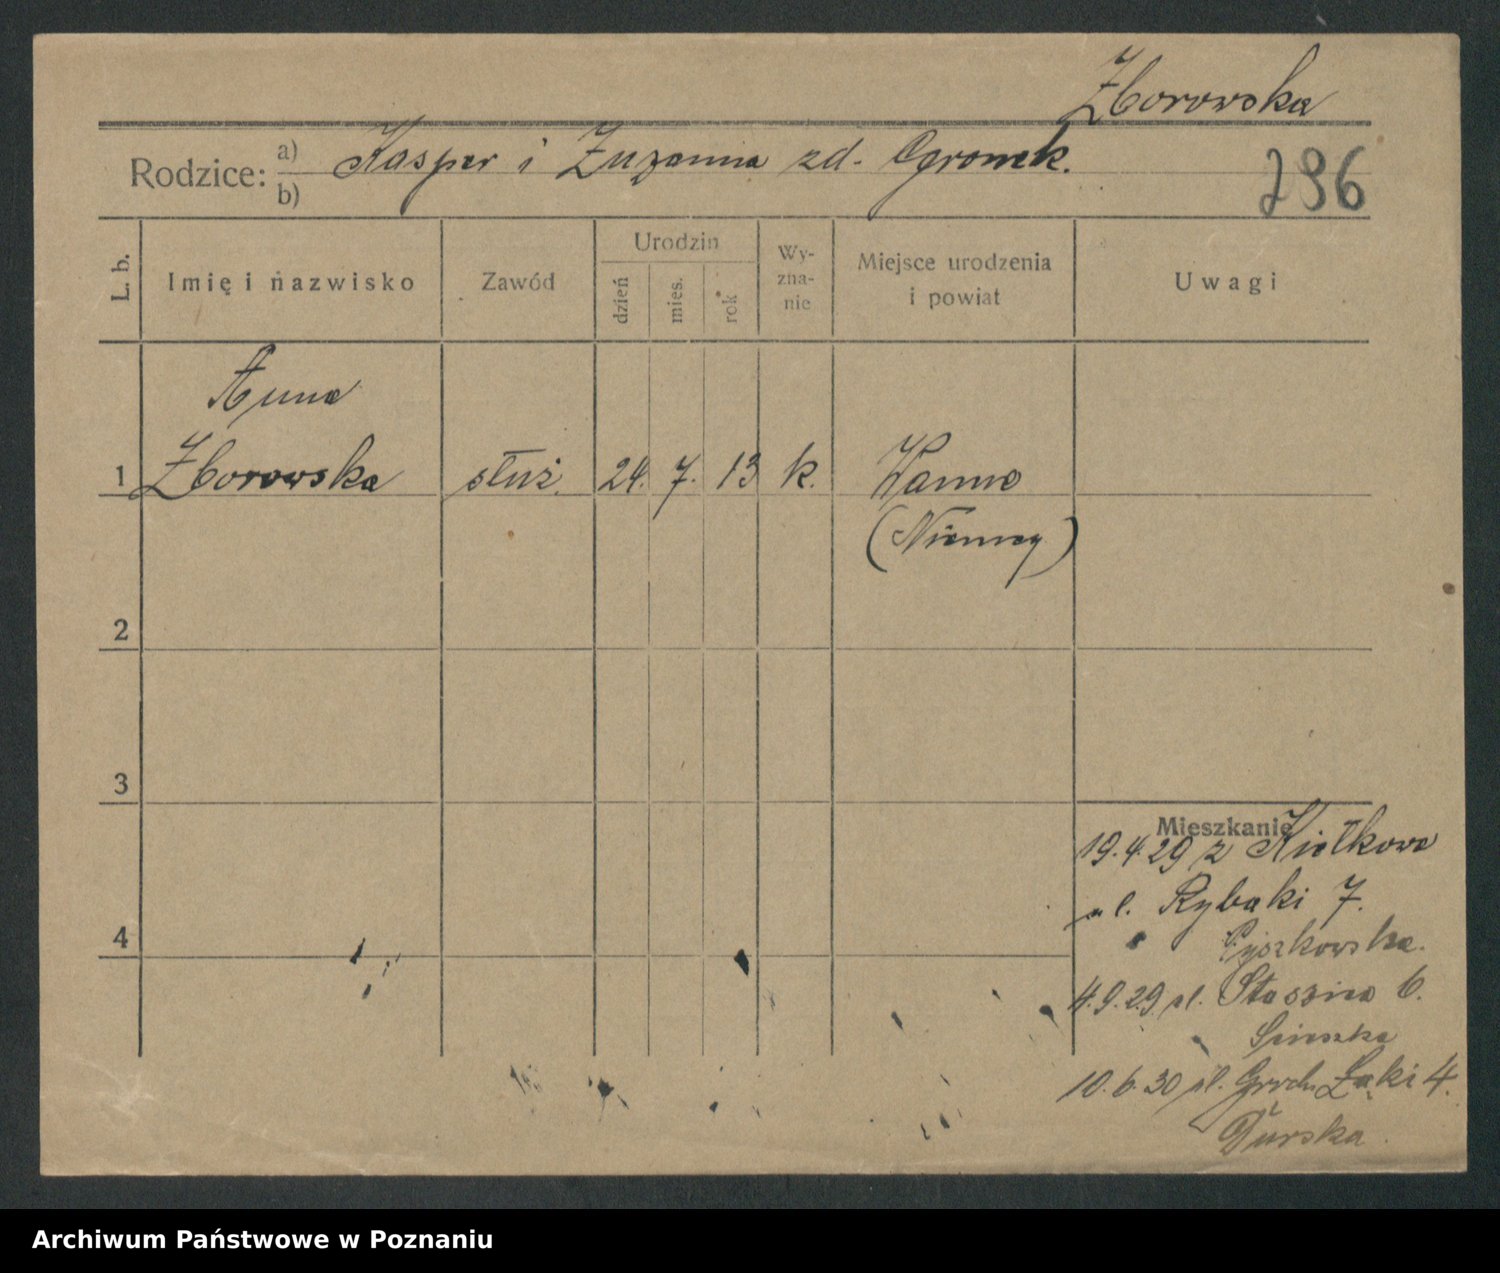 Zborowska
Rodzice: a) Kasper i Zuzanna zd. Ogronek.
b)
796
L. b.
Imię i nazwisko
Zawód
Urodzin
dzień
mies.
rok
Wy-
zna-
nie
Miejsce urodzenia
i powiat
Uwagi
Anna
1 Zborowska służ. 24. 7. 13 k. Wanne
(Niemcy)
2
3
4
Mieszkanie
19.4.29 z Kiełkowa
ul. Rybaki 7.
Pyszkowska.
4.9.29 ul. Staszica 6.
10.6.30 ul. Groch. Łąki 4.
Durska.
Archiwum Państwowe w Poznaniu